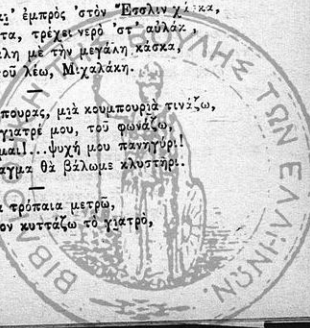 ἐμπρὸς 'στὸν Ἔσσλιν
τα, τρέχει νερὸ 'στ' αὐλάκ,
λη μὲ τὴν μεγάλη κάσκα,
τοῦ λέω, Μιχαλάκη.
πουρας, μιὰ κουμπουριὰ τινάζω,
γιατρέ μου, τοῦ φωνάζω,
μαι!...ψυχή μου πανηγύρι!
αγμα θὰ βάλωμε κλυστήρι.
τρόπαια μετρῶ,
ον κυττάζω τὸ γιατρὸ,
ΒΙΒΛΙΟΘΗΚΗ ΤΗΣ ΒΟΥΛΗΣ ΤΩΝ ΕΛΛΗΝΩΝ